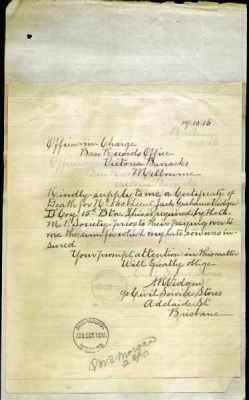 19.10.16
Officer in Charge
Base Records Office
Victoria Barracks
Melbourne
Kindly supply to me a Certificate of
Death for No 360 Lieut Jack Grahame Vidgen
D Coy 15th Btn. This is required by the
M. P. Society prior to their paying over to
me the sum for which my late son was in-
sured.
Your prompt attention in this matter
Will Greatly oblige
A R Vidgen
c/o Civil Service Stores
Adelaide St
Brisbane